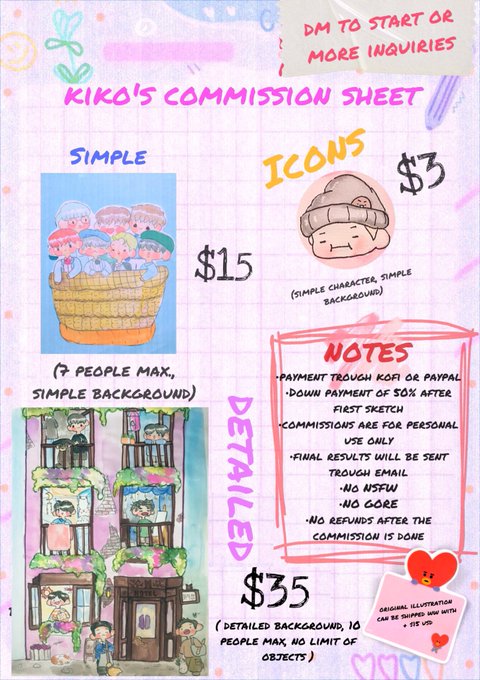 DM TO START OR
MORE INQUIRIES
KIKO'S COMMISSION SHEET
SIMPLE
ICONS
$3
$15
(SIMPLE CHARACTER, SIMPLE
BACKGROUND)
(7 PEOPLE MAX.,
SIMPLE BACKGROUND)
NOTES
•PAYMENT TROUGH KOFI OR PAYPAL
•DOWN PAYMENT OF 50% AFTER
FIRST SKETCH
•COMMISSIONS ARE FOR PERSONAL
USE ONLY
•FINAL RESULTS WILL BE SENT
TROUGH EMAIL
•NO NSFW
•NO GORE
•NO REFUNDS AFTER THE
COMMISSION IS DONE
DETAILED
$35
( DETAILED BACKGROUND, 10
PEOPLE MAX, NO LIMIT OF
OBJECTS )
ORIGINAL ILLUSTRATION
CAN BE SHIPPED WW WITH
+ $15 USD
HOTEL